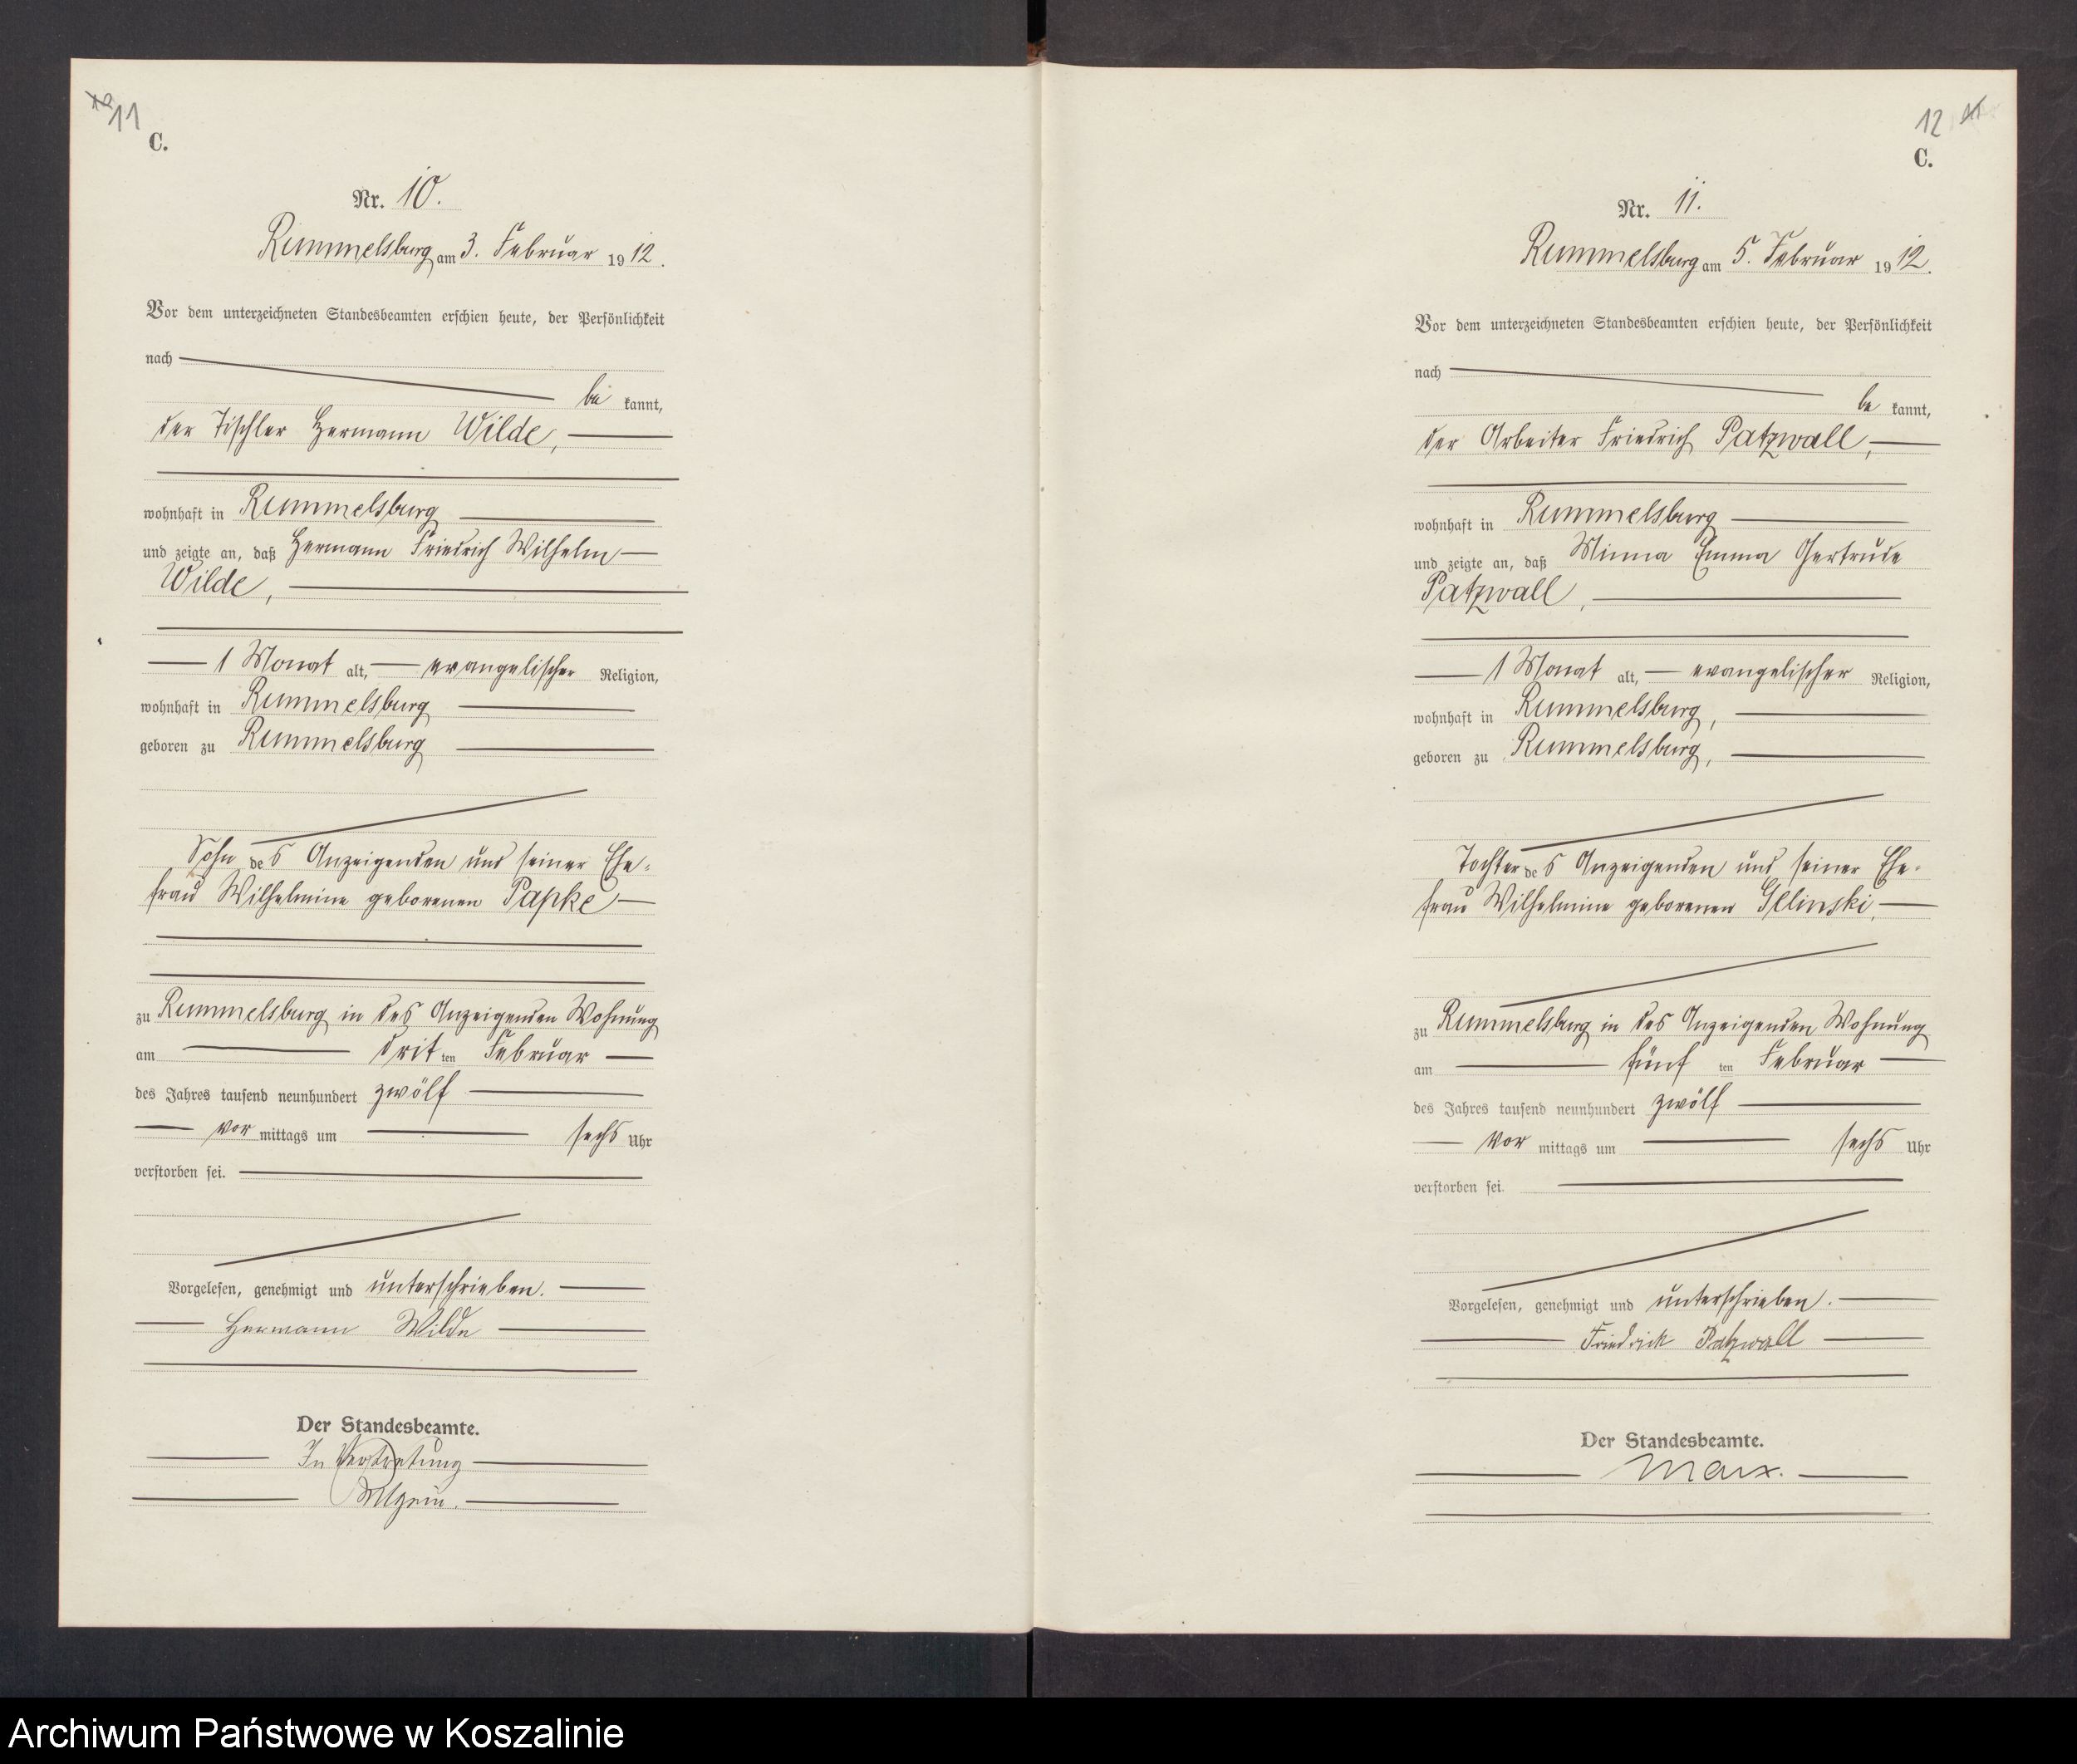 11
C.
Nr. 10.
Rummelsburg am 3. Februar 1912.
Vor dem unterzeichneten Standesbeamten erschien heute, der Persönlichkeit
nach
be kannt,
der Tischler Hermann Wilde,
wohnhaft in Rummelsburg
und zeigte an, daß Hermann Friedrich Wilhelm
Wilde,
1 Monat alt, evangelischer Religion,
wohnhaft in Rummelsburg
geboren zu Rummelsburg
Sohn des Anzeigenden und seiner Ehe-
frau Wilhelmine geborenen Papke
zu Rummelsburg in des Anzeigenden Wohnung
am dritten Februar
des Jahres tausend neunhundert zwölf
vor mittags um sechs Uhr
verstorben sei.
Vorgelesen, genehmigt und unterschrieben.
Hermann Wilde
Der Standesbeamte.
In Vertretung
12
C.
Nr. 11.
Rummelsburg am 5. Februar 1912.
Vor dem unterzeichneten Standesbeamten erschien heute, der Persönlichkeit
nach
be kannt,
der Arbeiter Friedrich Patzwall,
wohnhaft in Rummelsburg
und zeigte an, daß Minna Emma Gertrude
Patzwall,
1 Monat alt, evangelischer Religion,
wohnhaft in Rummelsburg,
geboren zu Rummelsburg,
Tochter des Anzeigenden und seiner Ehe-
frau Wilhelmine geborenen Glinski,
zu Rummelsburg in des Anzeigenden Wohnung
am fünften Februar
des Jahres tausend neunhundert zwölf
vor mittags um sechs Uhr
verstorben sei.
Vorgelesen, genehmigt und unterschrieben.
Friedrich Patzwall
Der Standesbeamte.
Marx.
Archiwum Państwowe w Koszalinie